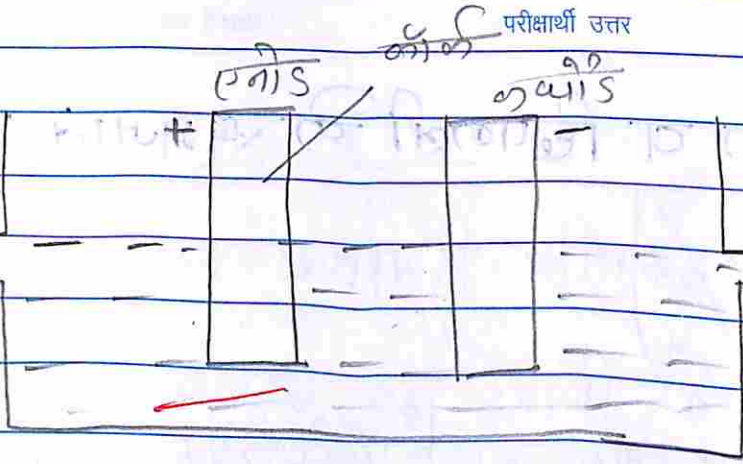 परीक्षार्थी उत्तर
कॉर्क
एनोड
कैथोड
+
-